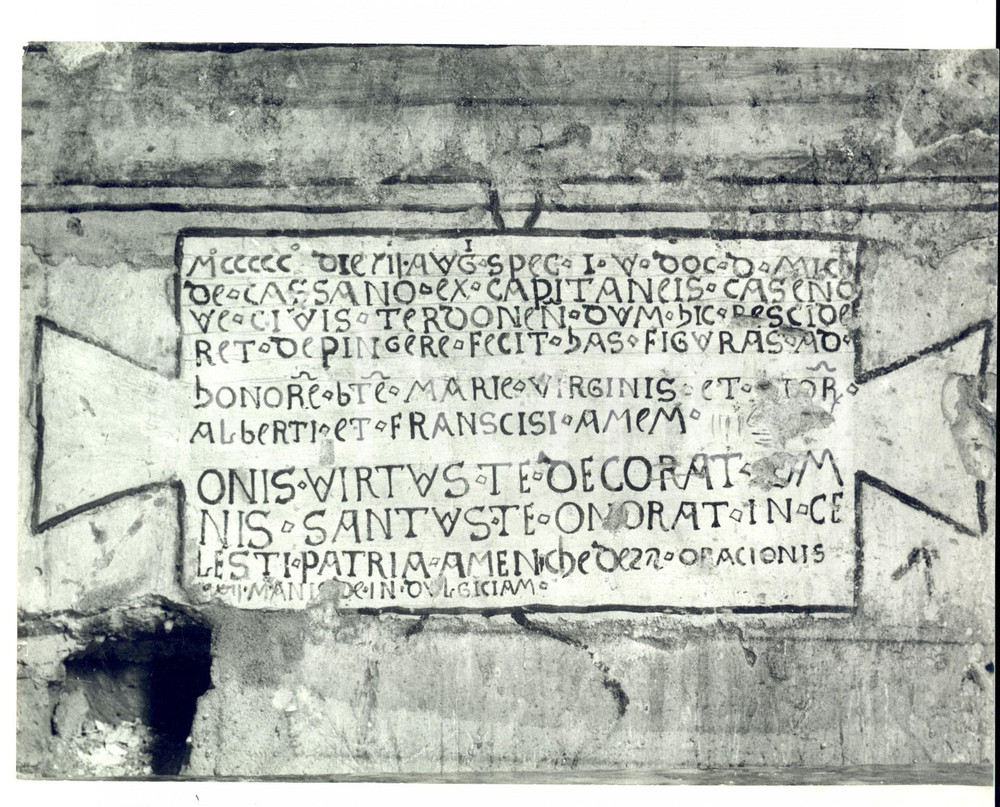 Mccccc DIE AVG · SPEC · I · V · DOC · D · MICh
De · CASSANO · ex · CAPITANeIS · CASENO
Ve · CIVIS · TeRDONeN · DVM · hIC · ReSCIDe
ReT · DePINGeRe · FeCIT · hAS · FIGVRAS · AD ·
hONORe · bTe · MARIe · VIRGINIS · eT ·
ALbeRTI · eT · FRANSCISI · AMeM ·
ONIS · VIRTVS · TE · DECORAT · OM
NIS · SANTVS · TE · ONORAT · IN · CE
LESTI · PATRIA · AMEN · ORACIONIS
DE · IN · DVLGICIAM ·